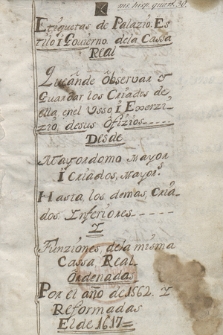 Etiquetas de Palazio, Es-
tilo i Govierno de la Cassa
Real
Que an de observar i
Guardar los Criados de
ella en el Usso i Exerzi-
zio de sus ofizios
Desde
Mayordomo Mayor
i Criados Mayores
Hasta los demas Cria
dos Inferiores
I
Funziones de la misma
Cassa Real
Ordenadas
Por el año de 1562. I
Reformadas
El de 1617